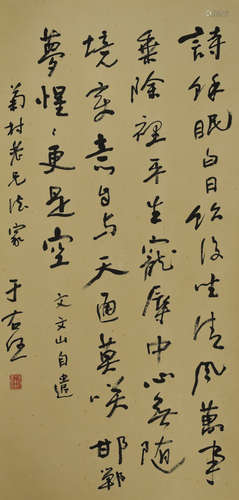 詩餘眠白日飲後清風萬事
乘除裡平生寵辱中心無隨
境變意自与天通莫咲邯鄲
夢惺〻更是空
文文山自遣
菊村老兄法家
于右任